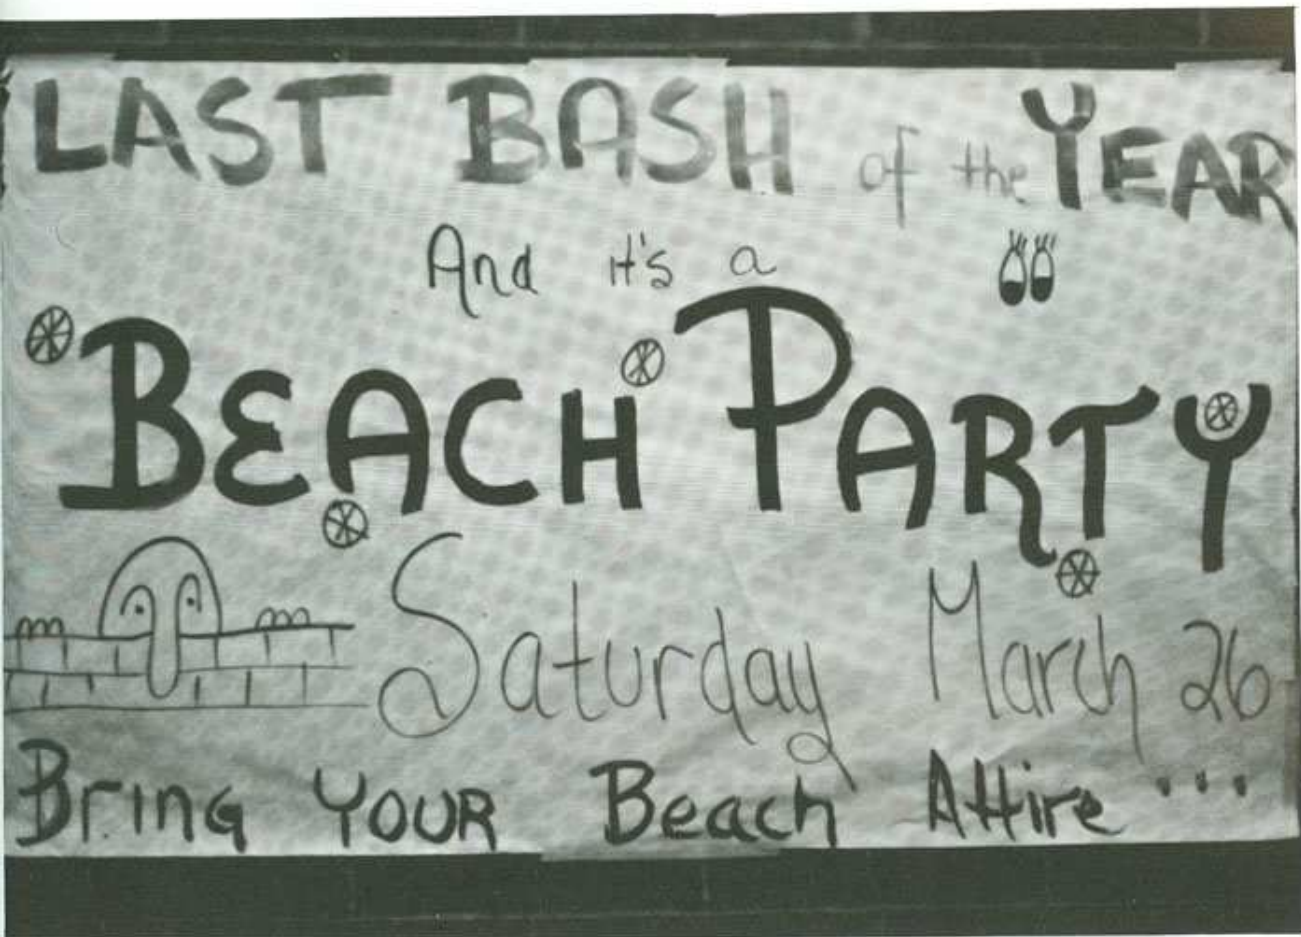 LAST BASH of the YEAR
And it's a
BEACH PARTY
Saturday March 26
Bring YOUR Beach Attire ...